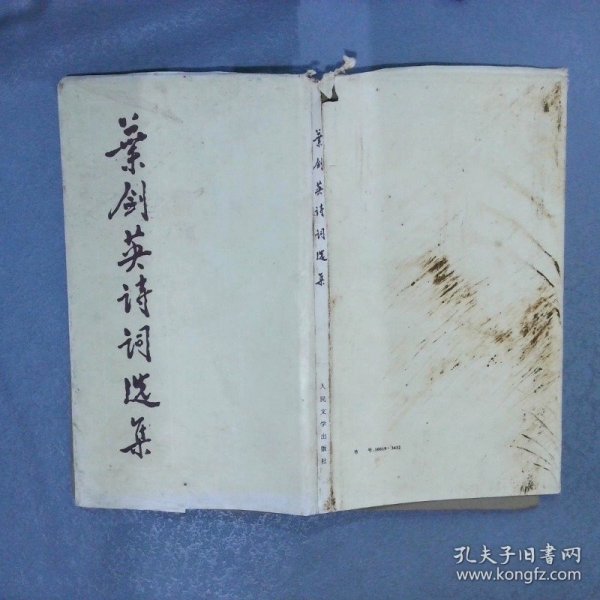 葉剑英诗词选集
葉剑英诗词选集
人民文学出版社
书号:10019·3432
孔夫子旧书网
www.kongfz.com